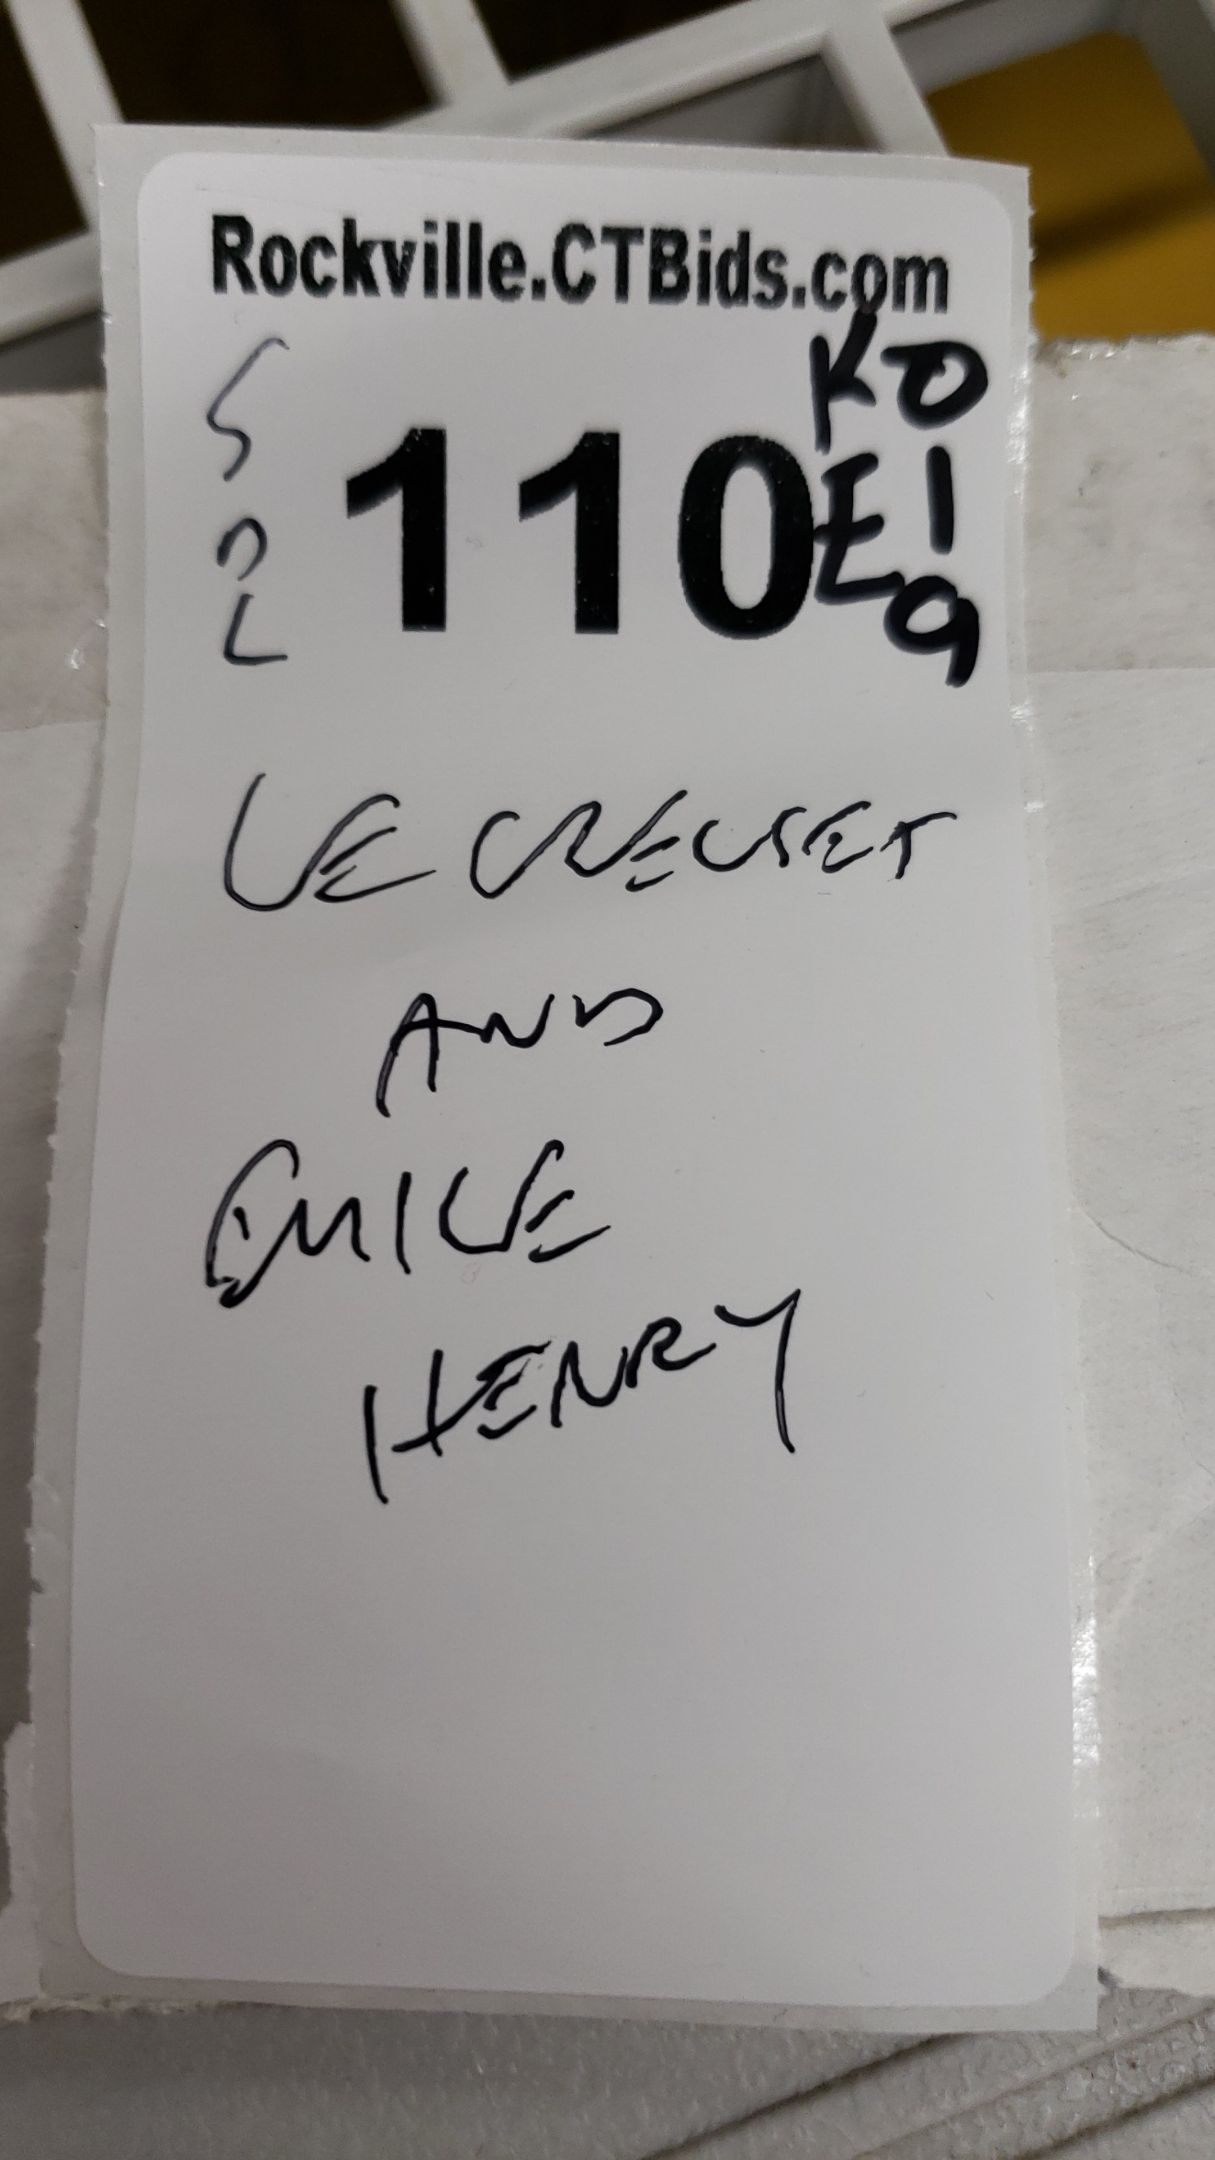 Rockville.CTBids.com
110
KE
019
LE CREUSET
AND
EMILE
HENRY